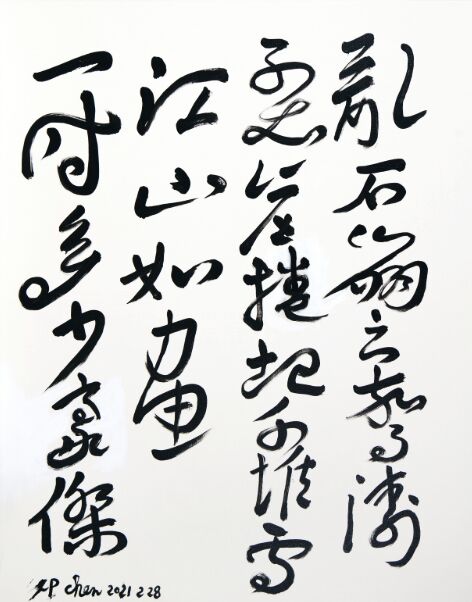 亂石崩云驚濤
裂岸捲起千堆雪
江山如畫
一時多少豪傑
chen 2021 2 28